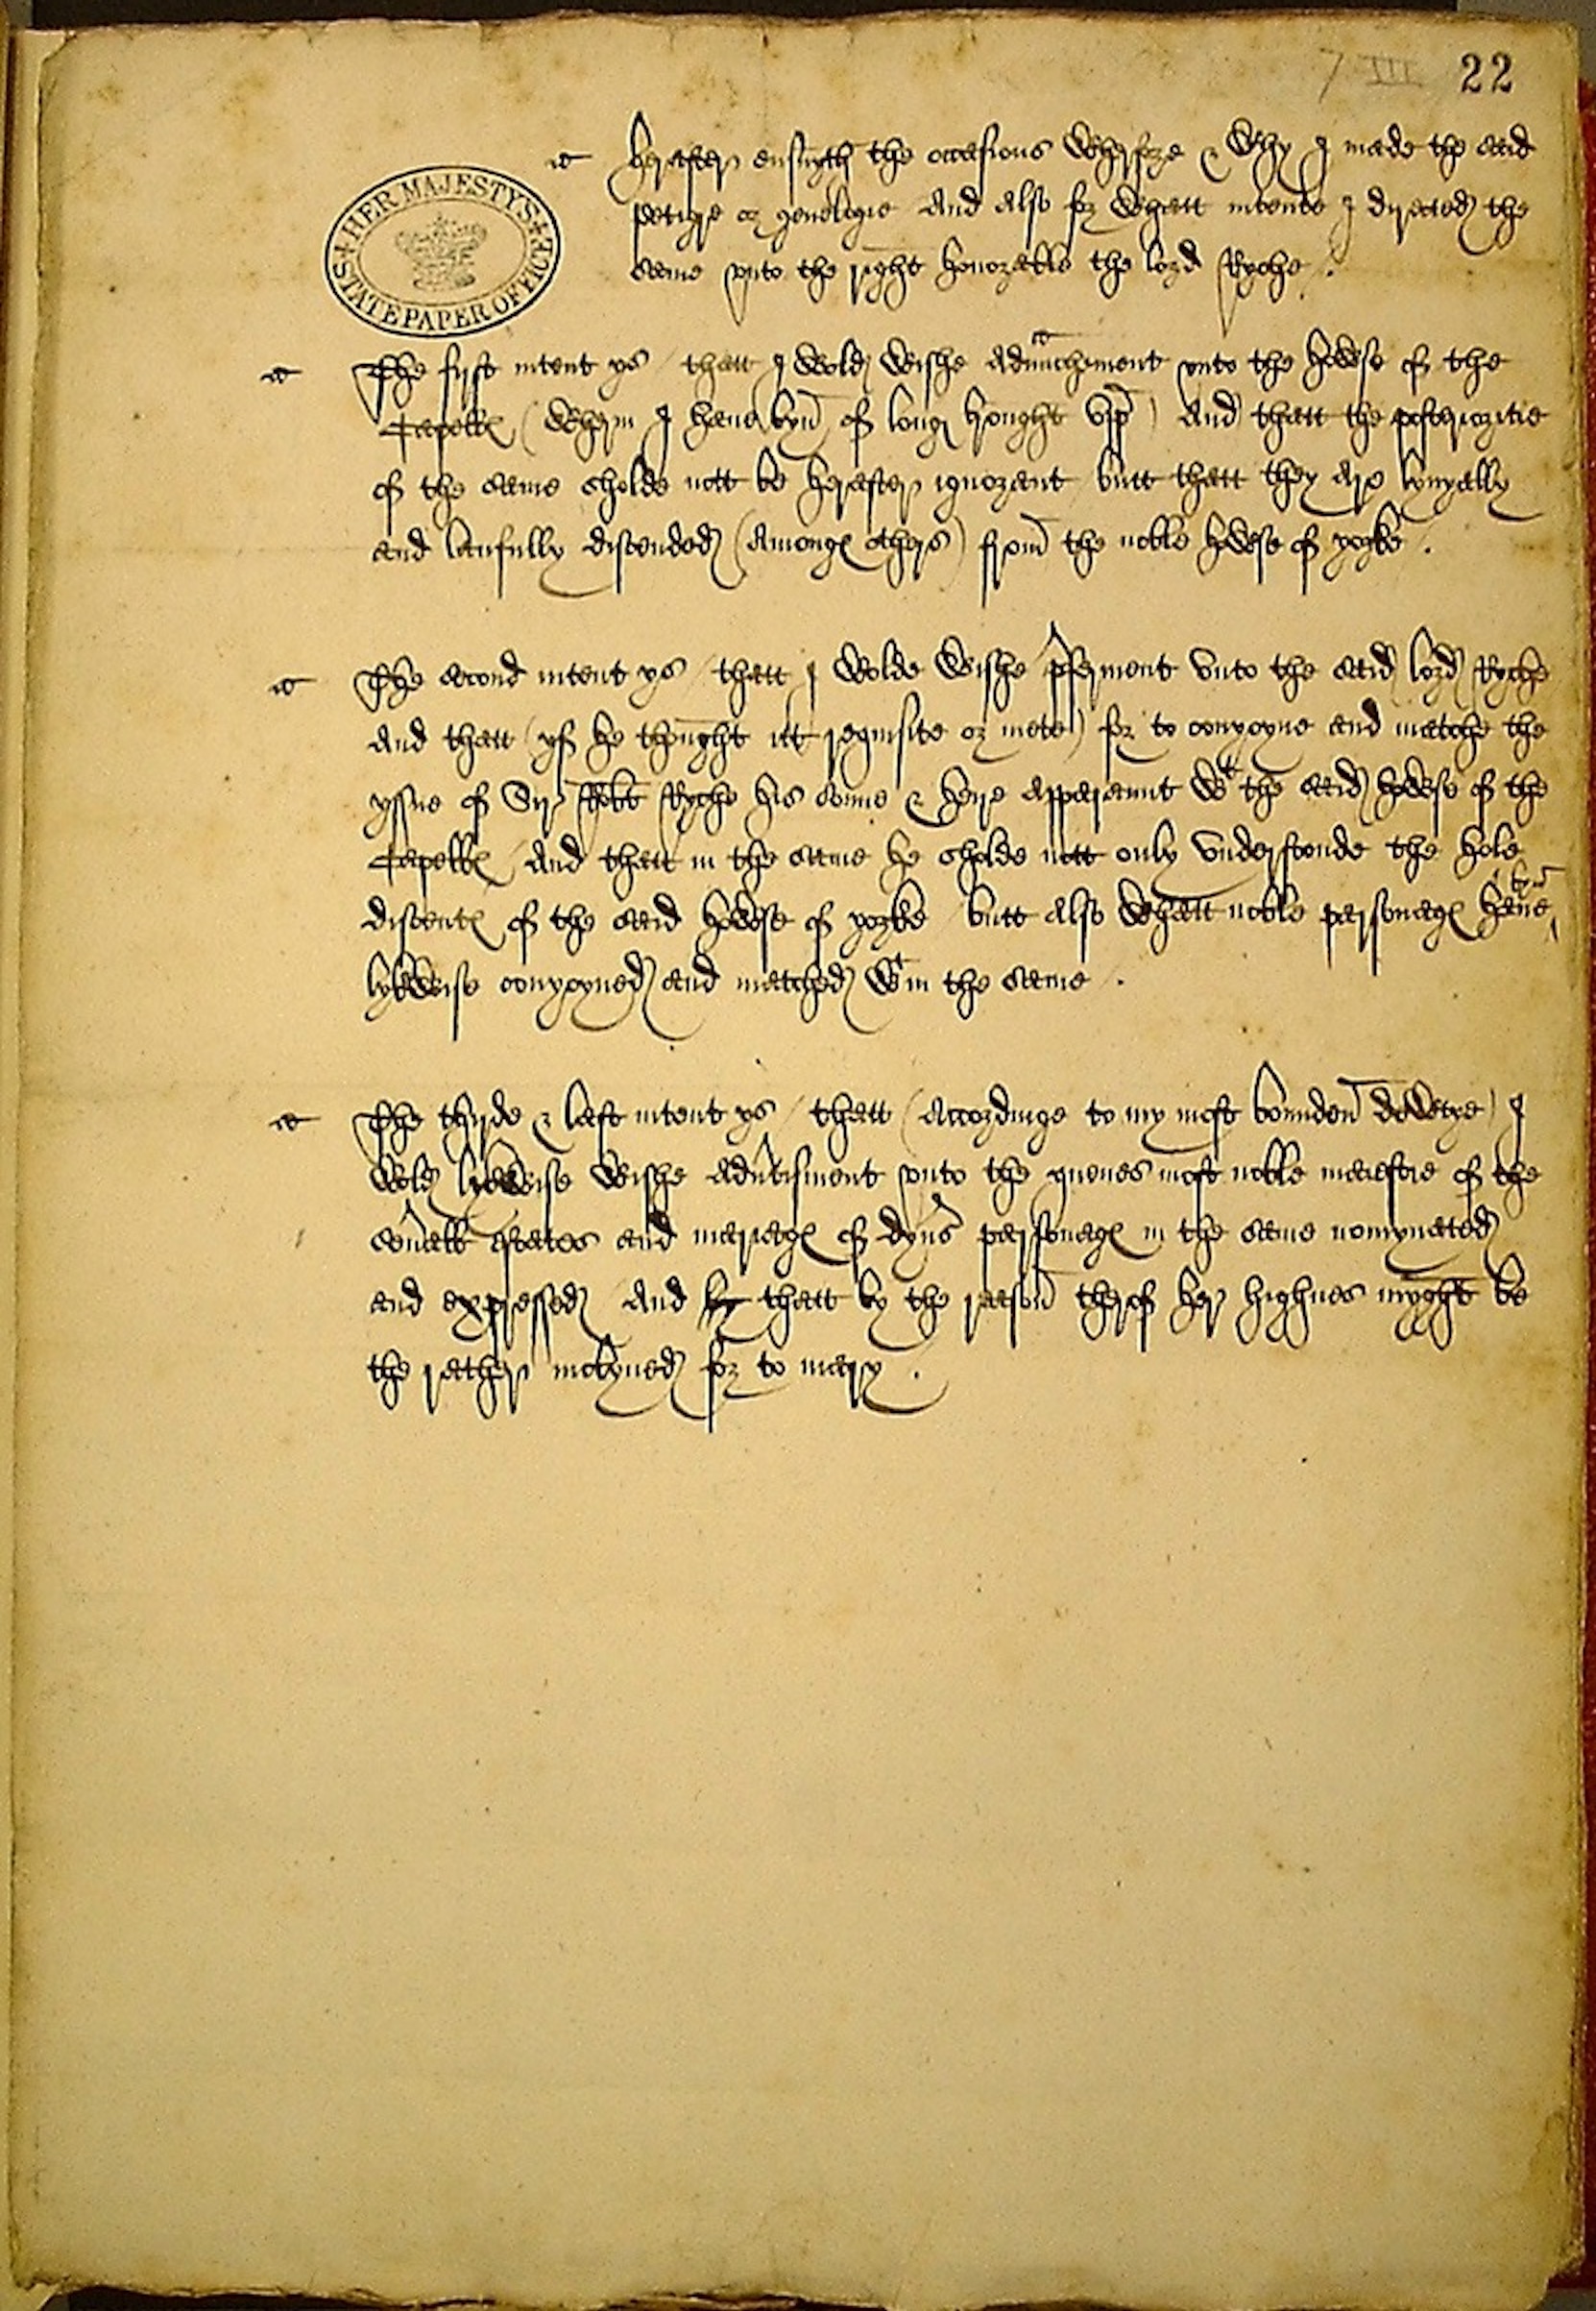 7 III 22
HER MAJESTYS STATE PAPER OFFICE
herafter ensuyth the occasions Wherfore & Why I made the said
petigre or genelogie And also for Whatt intente I directed the
same vnto the right honorable the lord Ryche .
The fyrst intent ys / thatt I Wold Wishe Aduanchement vnto the howse of the
Capellꝭ ( Wherin I haue byn of long brought vpp ) And thatt the posterioritie
of the same sholde nott be herafter ignorant butt thatt they are lynyally
and laufully discended ( Amongꝭ others ) from the noble howse of yorke .
The second intent ys / thatt I Wolde Wishe pferment vnto the said lord Ryche
And thatt ( yf he thought itt requisite or mete ) for to conyoyne and matche the
yssue of Syr Robt Ryche his sonne & heyre Apparaunt Wt the said howse of the
Capellꝭ / And thatt in the same he sholde nott only vnderstonde the hole
discentꝭ of the said howse of yorke / butt Also Whatt noble personagꝭ haue byn
lykWise conyoyned and matched Wtin the same .
The thyrde & last intent ys / thatt ( Accordinge to my most bounden deWtye ) I
Wold lykWise Wishe Aduisment vnto the quenes most noble maiestie of the
seuall estates and mariagꝭ of dyus personagꝭ in the same nomynated
and expressed / And by thatt by the reason therof her highnes myght be
the rather inclyned for to mary .